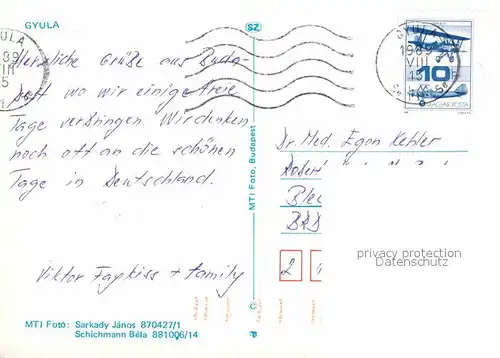 GYULA
SZ
GYULA
1989
VIII
15
MAGYAR POSTA
10
Herzliche Grüße aus Buda-
pest wo wir einige freie
Tage verbringen. Wir denken
noch oft an die schönen
Tage in Deutschland.
Viktor + family
MTI Foto, Budapest
Dr. Med. Egon Kehler
Robert
BRD
2
privacy protection
Datenschutz
MTI Fotó: Sarkady János 870427/1
Schichmann Béla 881006/14